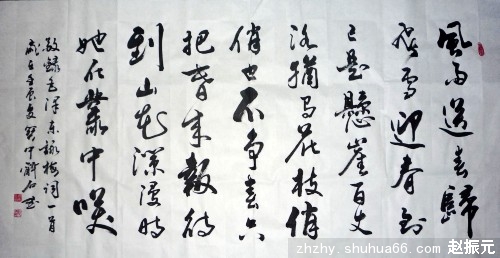 風雨送春歸
飛雪迎春到
已是懸崖百丈
冰猶有花枝俏
俏也不争春只
把春來報待
到山花爛漫時
她在叢中咲
敬録毛澤東詠梅詞一首
歲在壬辰
zhzhy.shuhua66.com 赵振元